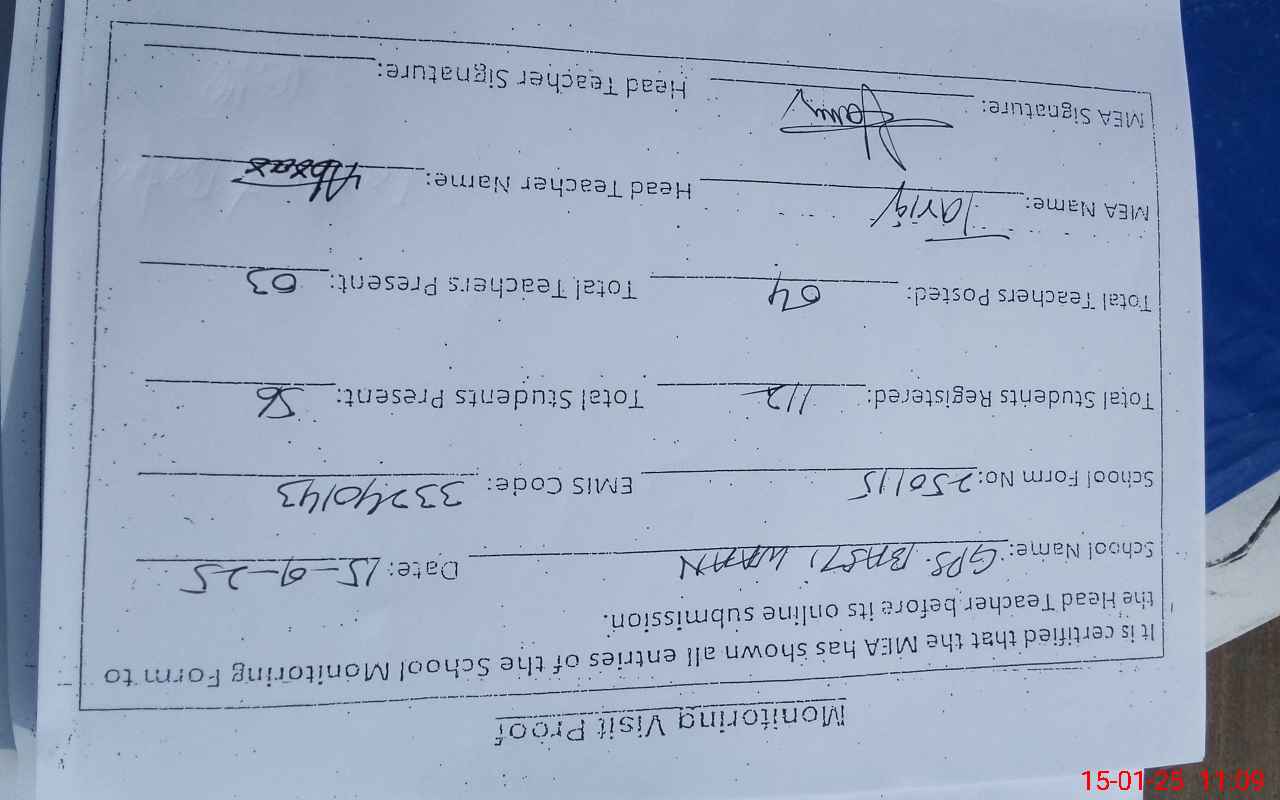 Monitoring Visit Proof
It is certified that the MEA has shown all entries of the School Monitoring Form to
the Head Teacher before its online submission.
School Name: GPS. BASTI Date: 15-9-25
School Form No: 250115 EMIS Code: 33240143
Total Students Registered: 112 Total Students Present: 56
Total Teachers Posted: 04 Total Teachers Present: 03
MEA Name: Tariq Head Teacher Name:
MEA Signature: Head Teacher Signature:
15-01-25 11:09